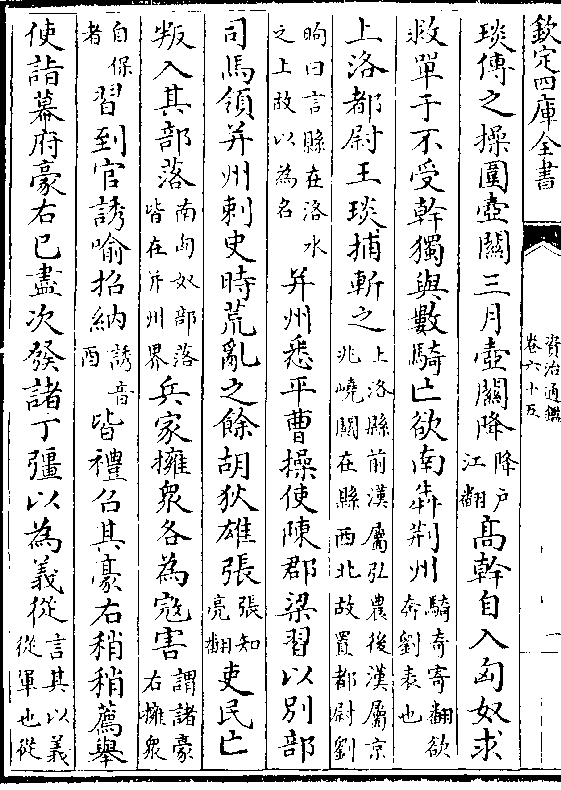 欽定四庫全書
資治通鑑
卷六十五
一
琰傳之操圍壺關三月壺關降降户江翻高幹自入匈奴求
救單于不受幹獨與數騎亡欲南犇荆州騎奇寄翻欲奔劉表也
上洛都尉王琰捕斬之上洛縣前漢屬弘農後漢屬京兆嶢關在縣西北故置都尉劉
昫曰言縣在洛水之上故以為名并州悉平曹操使陳郡梁習以别部
司馬領并州刺史時荒亂之餘胡狄雄張張知亮翻吏民亡
叛入其部落南匈奴部落皆在并州界兵家擁衆各為寇害謂諸豪右擁衆
自保者習到官誘喻招納誘音酉皆禮召其豪右稍稍薦舉
使詣幕府豪右已盡次發諸丁彊以為義從言其以義從軍也從